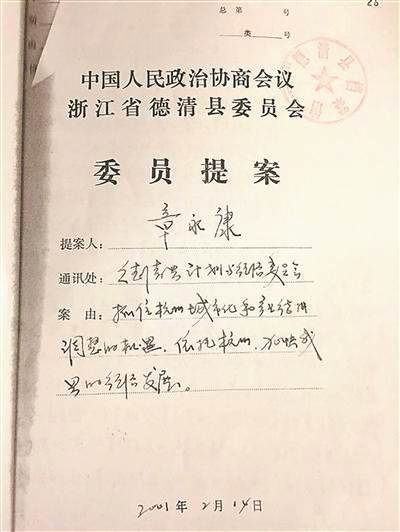 总第 号
类 号
28
中国人民政治协商会议
浙江省德清县委员会
委员提案
提案人： 章永康
通讯处： 德清县计划与经济委员会
案由： 抓住杭州城市化和产业结构
调整的机遇，依托杭州，加快我
县的经济发展。
2001年2月14日